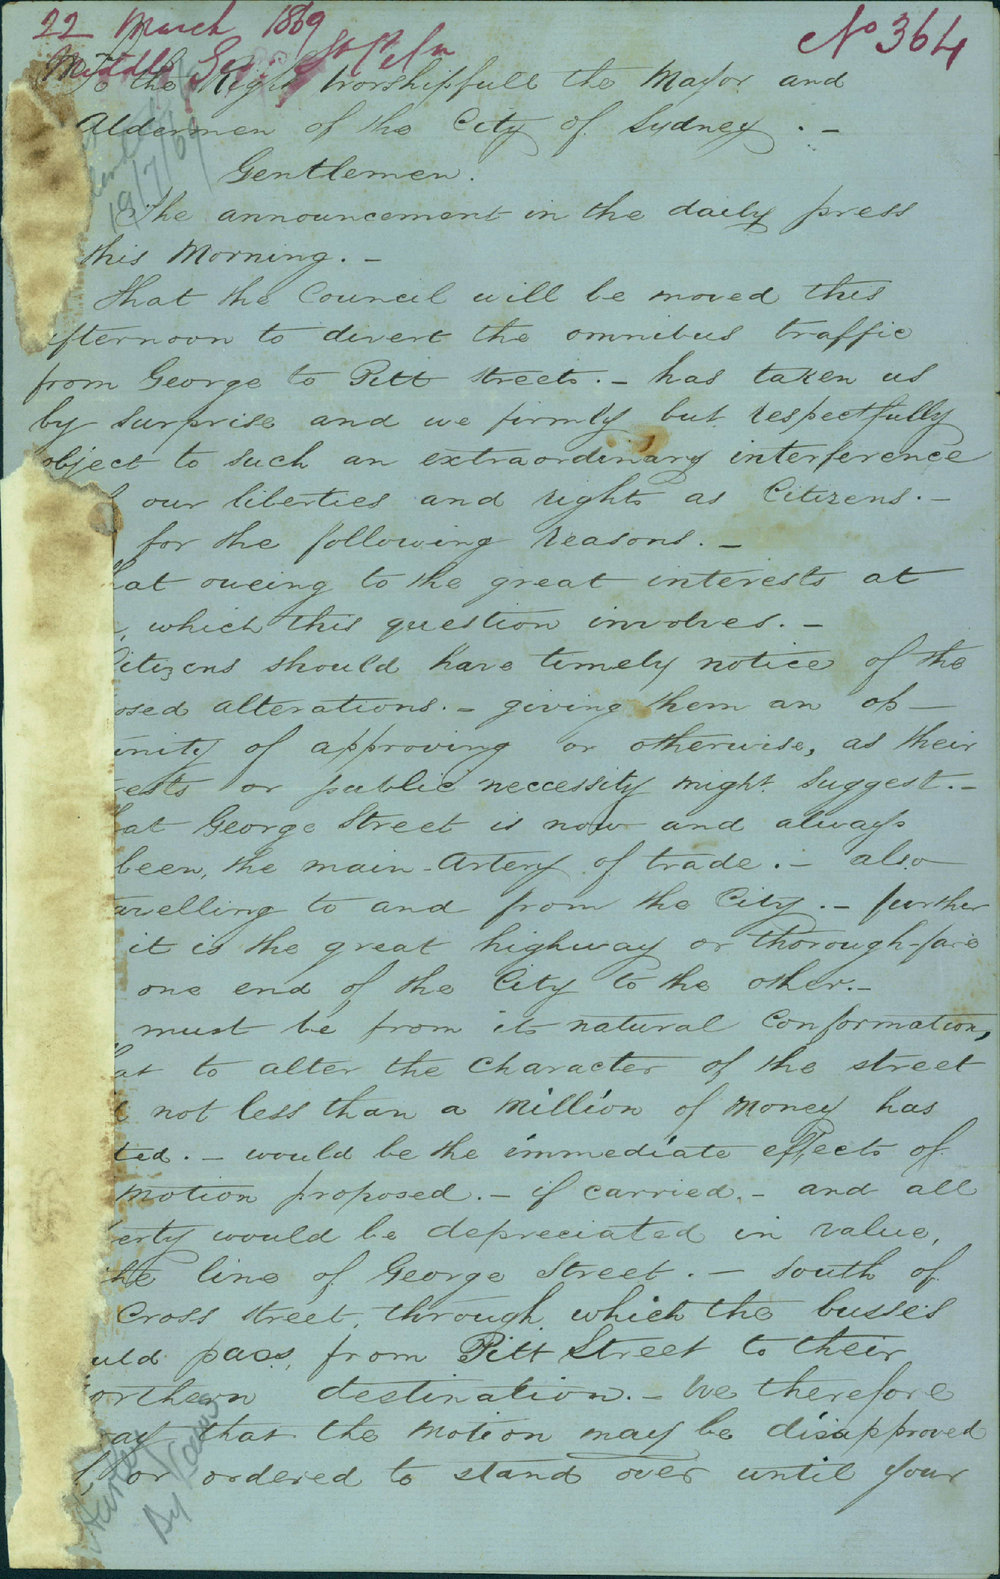 22 March 1869
No 364
To the Right Worshipfull the Mayor and
Aldermen of the City of Sydney. —
Gentlemen.
19/7/69
The announcement in the daily press
this Morning. —
that the Council will be moved this
fternoon to divert the omnibus traffic
from George to Pitt Streets. — has taken us
by surprise and we firmly but respectfully
object to such an extraordinary interference
our liberties and rights as Citizens. —
for the following reasons. —
hat oweing to the great interests at
, which this question involves. —
Citizens should have timely notice of the
osed alterations. — giving them an op—
unity of approving or otherwise, as their
rests or public neccessity might suggest. —
hat George Street is now and always
been, the main Artery of trade. — also
avelling to and from the City. — further
it is the great highway or thorough-fare
one end of the City to the other. —
must be from its natural Conformation,
hat to alter the Character of the street
not less than a Million of Money has
ted. — would be the immediate effects of
Motion proposed. — if carried, — and all
erty would be depreciated in value,
the line of George Street. — South of
Cross Street, through which the busses
uld pass, from Pitt Street to their
orthern destination. — We therefore
ray that the Motion may be disapproved
or ordered to stand over until your
By